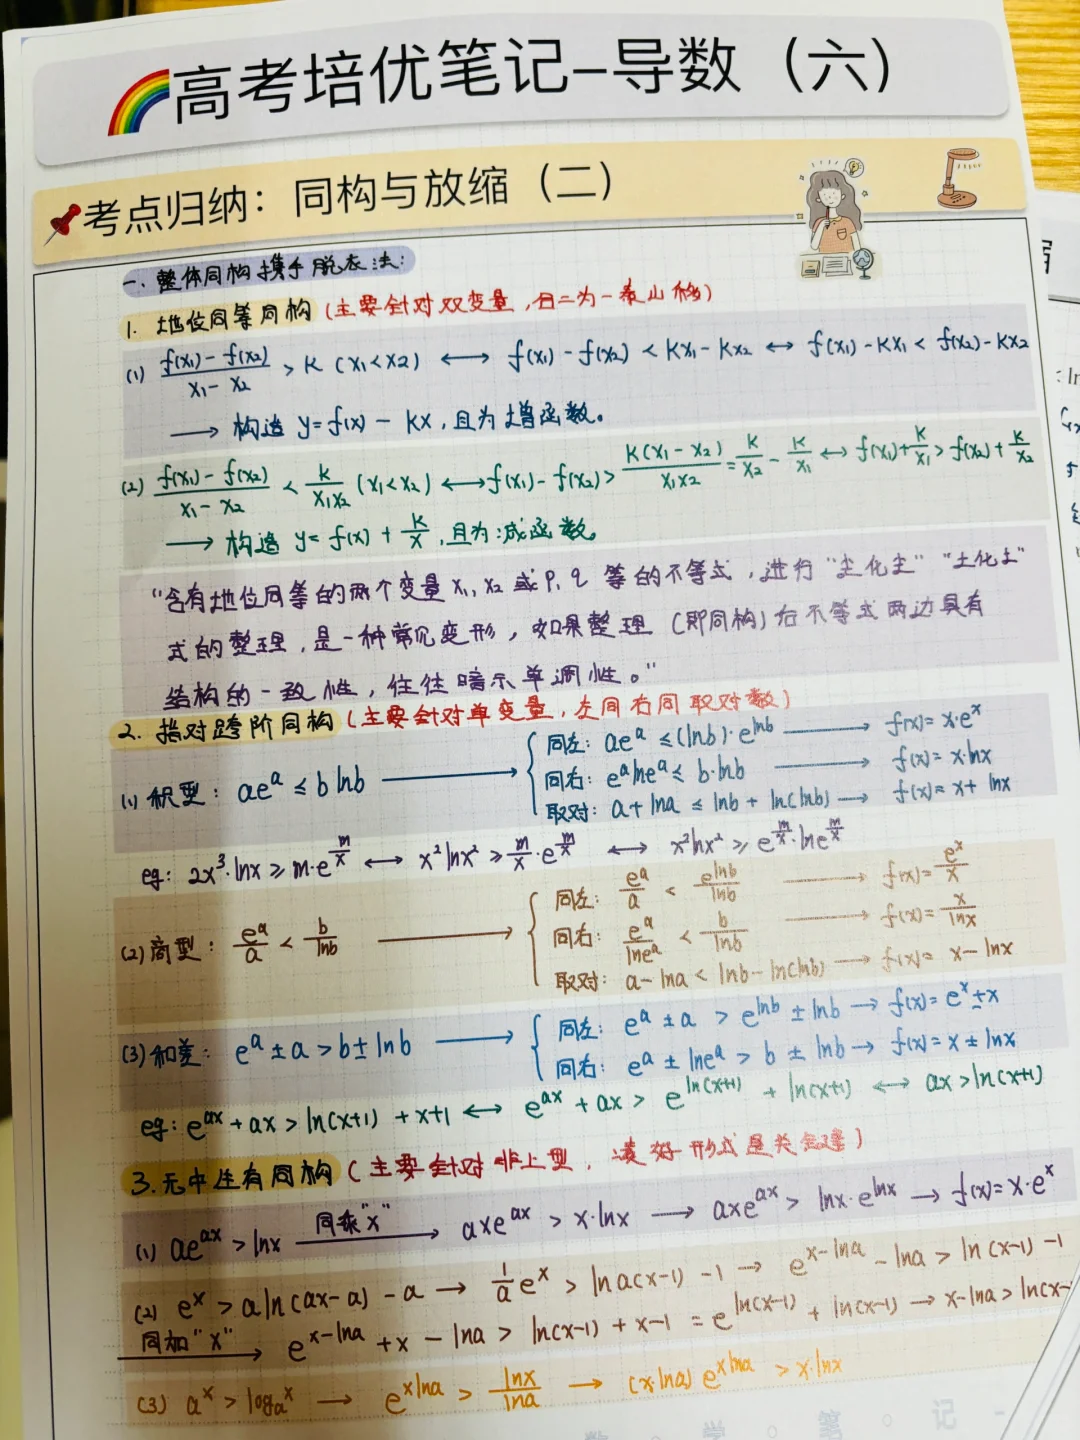 高考培优笔记–导数（六）
考点归纳：同构与放缩（二）
一. 整体同构携手脱衣法:
1. 地位同等同构 (主要针对双变量, 合二为一泰山移)
(1) (f(x₁)-f(x₂))/(x₁-x₂) > k (x₁<x₂) ⟷ f(x₁)-f(x₂) < kx₁-kx₂ ⟷ f(x₁)-kx₁ < f(x₂)-kx₂
⟶ 构造 y=f(x)-kx, 且为增函数。
(2) (f(x₁)-f(x₂))/(x₁-x₂) < k/(x₁x₂) (x₁<x₂) ⟷ f(x₁)-f(x₂) > k(x₁-x₂)/(x₁x₂) = k/x₂ - k/x₁ ⟷ f(x₁)+k/x₁ > f(x₂)+k/x₂
⟶ 构造 y=f(x)+k/x, 且为减函数。
“含有地位同等的两个变量 x₁, x₂ 或 P, q 等的不等式, 进行“ 化 ” “ 化 ”
式的整理, 是一种常见变形, 如果整理 (即同构) 后不等式两边具有
结构的一致性, 往往暗示单调性。”
2. 指对跨阶同构 (主要针对单变量, 左同右同取对数)
(1) 积型: aeᵃ ≤ b lnb ⟶
同左: aeᵃ ≤ (lnb)·e^(lnb) ⟶ f(x)=x·eˣ
同右: eᵃlneᵃ ≤ b·lnb ⟶ f(x)=x·lnx
取对: a+lna ≤ lnb+ln(lnb) ⟶ f(x)=x+lnx
eg: 2x³·lnx ≥ m·e^(m/x) ⟷ x²lnx² ≥ m/x·e^(m/x) ⟷ x²lnx² ≥ e^(m/x)·lne^(m/x)
(2) 商型: eᵃ/a < b/lnb ⟶
同左: eᵃ/a < e^(lnb)/lnb ⟶ f(x)=eˣ/x
同右: eᵃ/lneᵃ < b/lnb ⟶ f(x)=x/lnx
取对: a-lna < lnb-ln(lnb) ⟶ f(x)=x-lnx
(3) 和差: eᵃ±a > b±lnb ⟶
同左: eᵃ±a > e^(lnb)±lnb → f(x)=eˣ±x
同右: eᵃ±lneᵃ > b±lnb → f(x)=x±lnx
eg: e^(ax)+ax > ln(x+1)+x+1 ⟷ e^(ax)+ax > e^(ln(x+1))+ln(x+1) ⟷ ax>ln(x+1)
3. 无中生有同构 (主要针对非上型, 凑好形式是关键)
(1) ae^(ax) > lnx 同乘“x” ⟶ axe^(ax) > x·lnx ⟶ axe^(ax) > lnx·e^(lnx) → f(x)=x·eˣ
(2) eˣ > aln(ax-a)-a → 1/a eˣ > lna(x-1)-1 → e^(x-lna)-lna > ln(x-1)-1
同加“x” ⟶ e^(x-lna)+x-lna > ln(x-1)+x-1 = e^(ln(x-1))+ln(x-1) → x-lna>ln(x-
(3) aˣ > logₐˣ → e^(xlna) > lnx/lna → (x·lna)e^(xlna) > x·lnx
数 。 学 。 笔 。 记 -